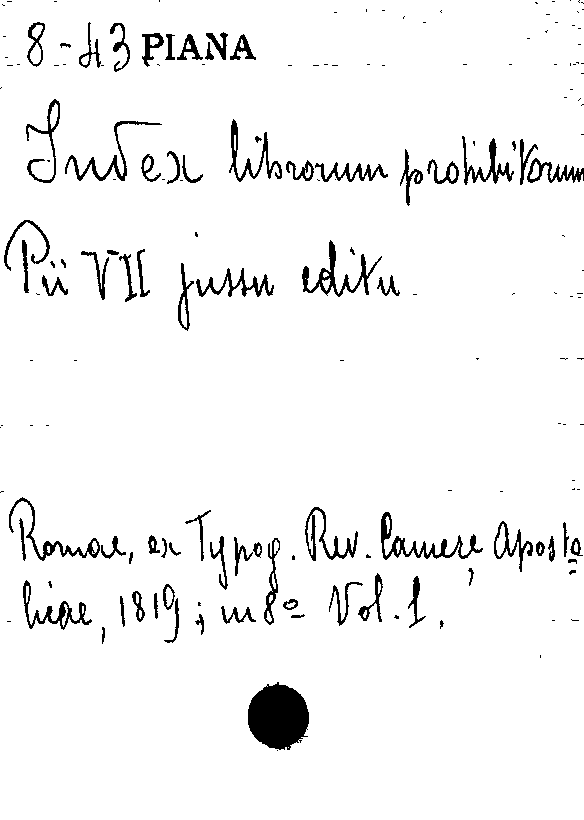 8-43 PIANA
Index librorum prohibitorum
Pii VII jussu editu
Romae, ex Typog. Rev. Camerę Aposto
licae, 1819; in 8º Vol. 1.